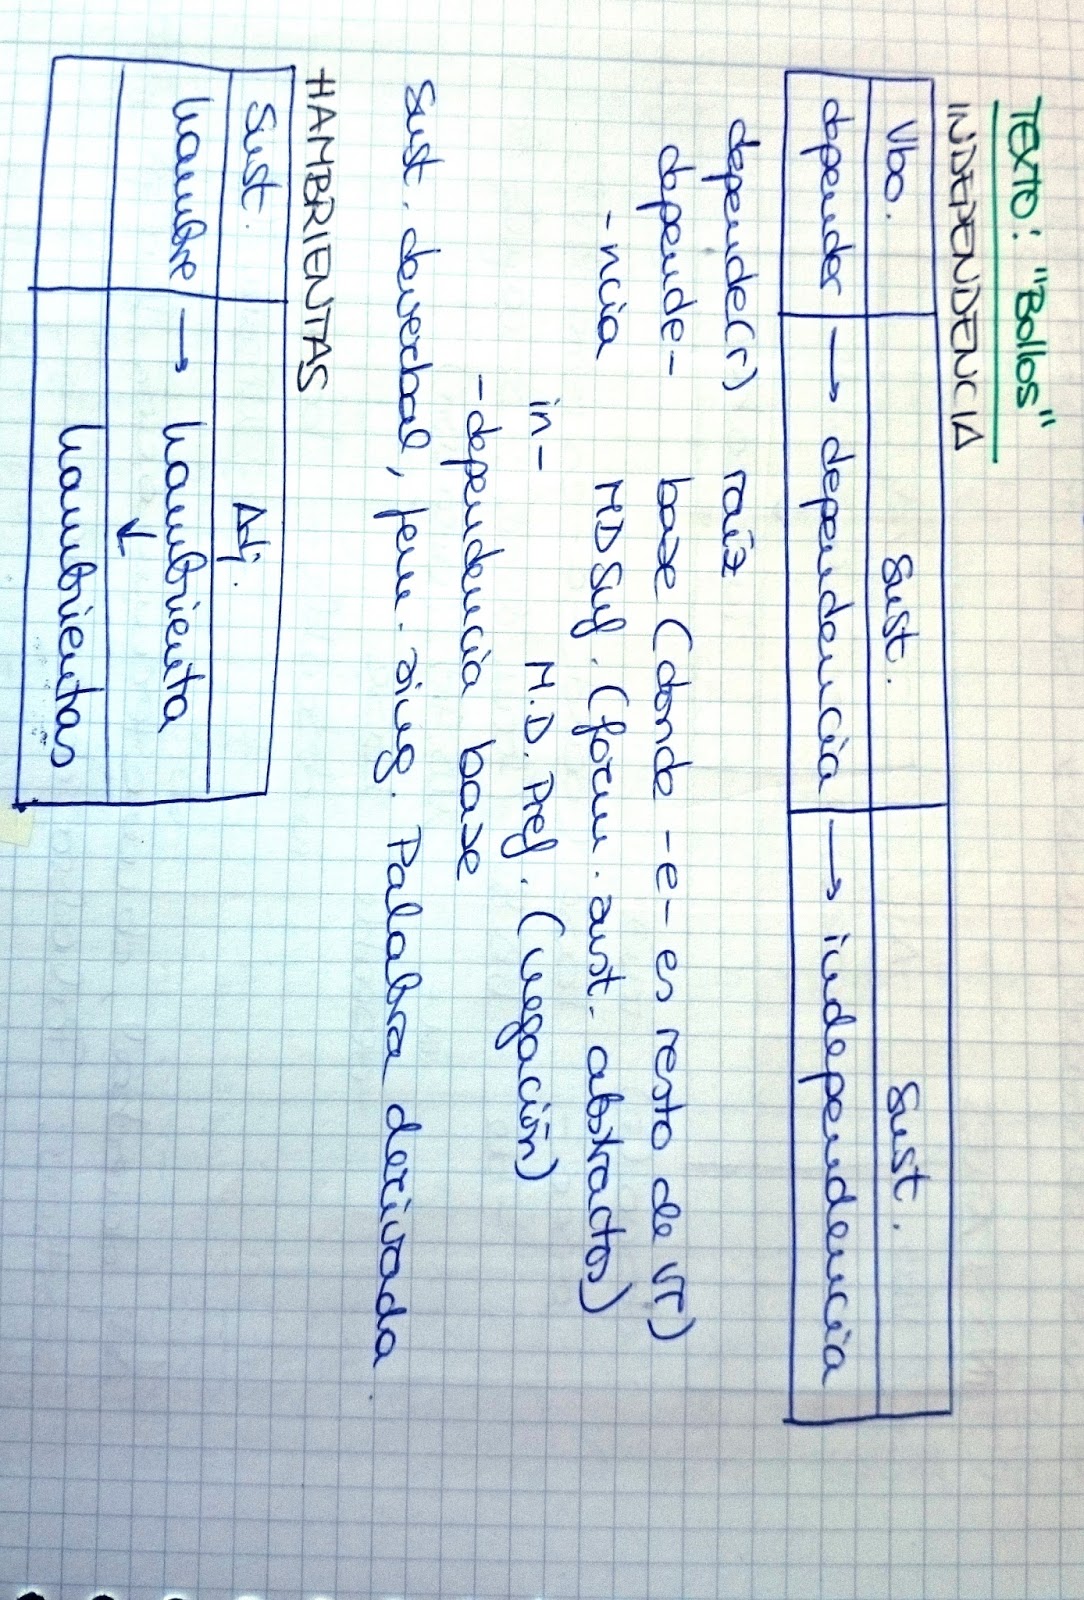 TEXTO: "Bollos"
INDEPENDENCIA
Vbo. Sust. Sust.
depender → dependencia → independencia
depende(r) raíz
depende- base (donde -e- es resto de VT)
-ncia MDSuf. (form. sust. abstractos)
in- M.D. Pref. (negación)
-dependencia base
Sust. deverbal, fem. sing. Palabra derivada
HAMBRIENTAS
Sust. Adj.
hambre → hambrienta
↓
hambrientas